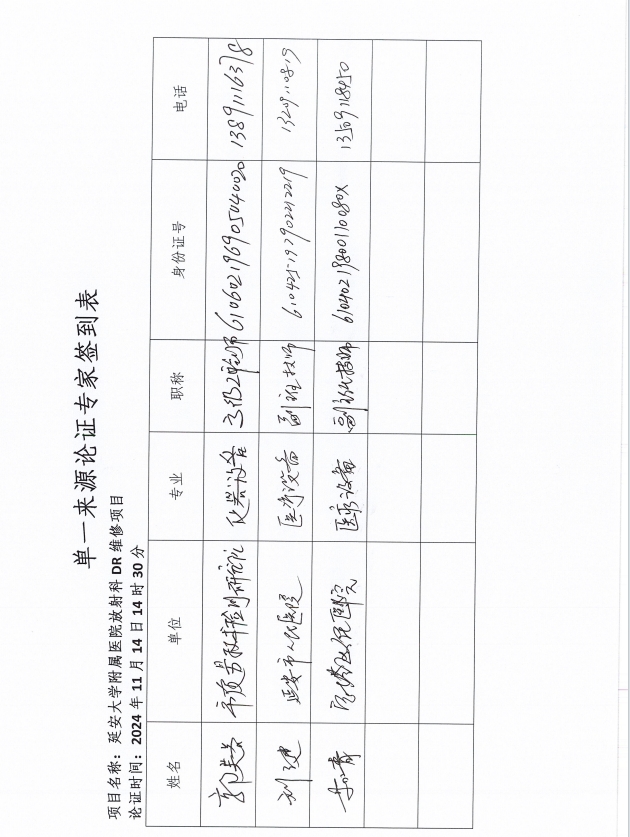 单一来源论证专家签到表
项目名称：延安大学附属医院放射科 DR 维修项目
论证时间：2024 年 11 月 14 日 14 时 30 分
姓名 单位 专业 职称 身份证号 电话
仪器设备 工程师 610602196905040020 13891116378
刘建 延安市人民医院 医疗设备 副主任技师 610425197902212219 13209110819
医院 医疗设备 副主任技师 61040219800110080X 13509118450